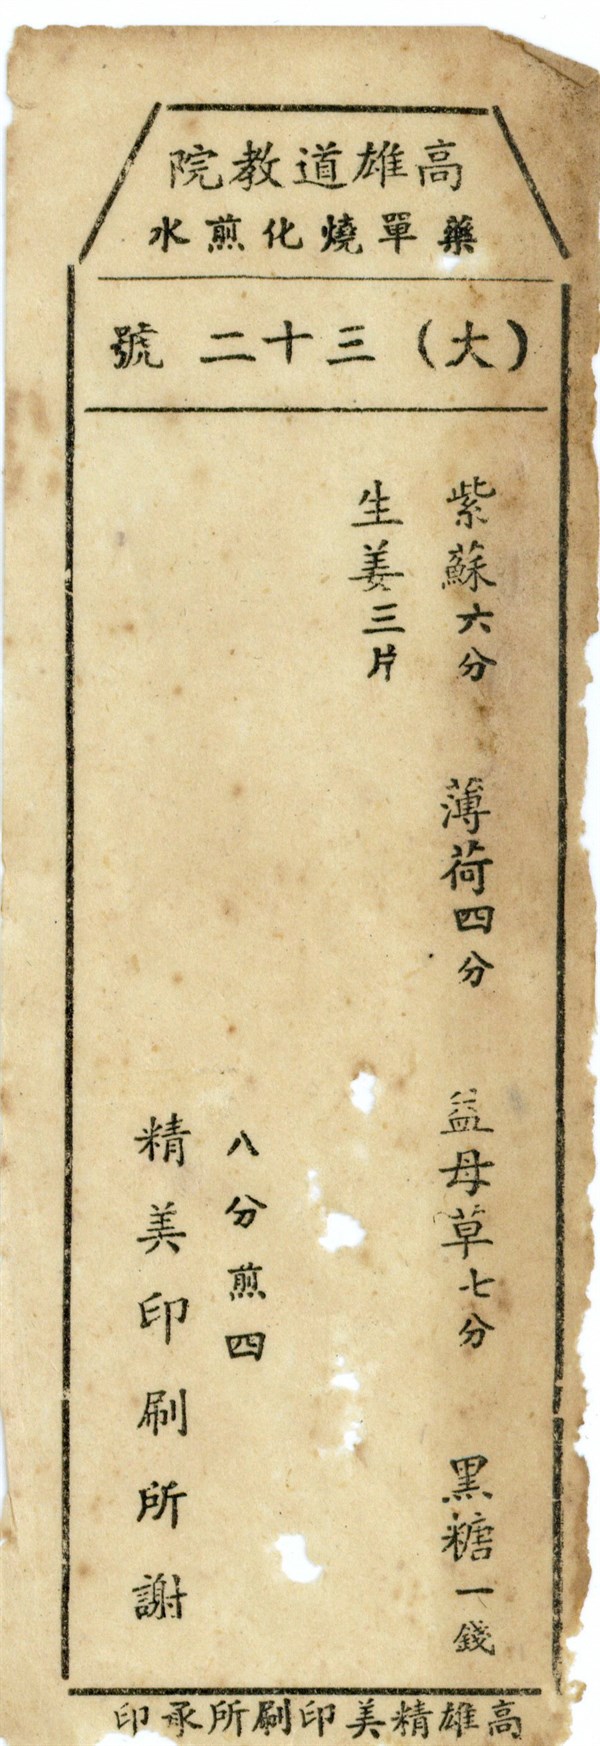 高雄道教院
藥單燒化煎水
（大）三十二號
紫蘇六分　薄荷四分　益母草七分　黑糖一錢
生姜三片
八分煎四
精美印刷所謝
高雄精美印刷所承印